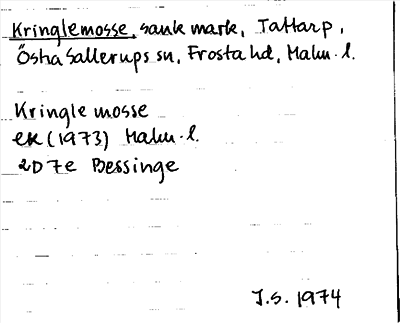 Kringlemosse, sank mark, Tattarp,
Östra Sallerups sn, Frosta hd, Malm. l.
Kringle mosse
ek (1973) Malm. l.
2D 7e Bessinge
J.S. 1974